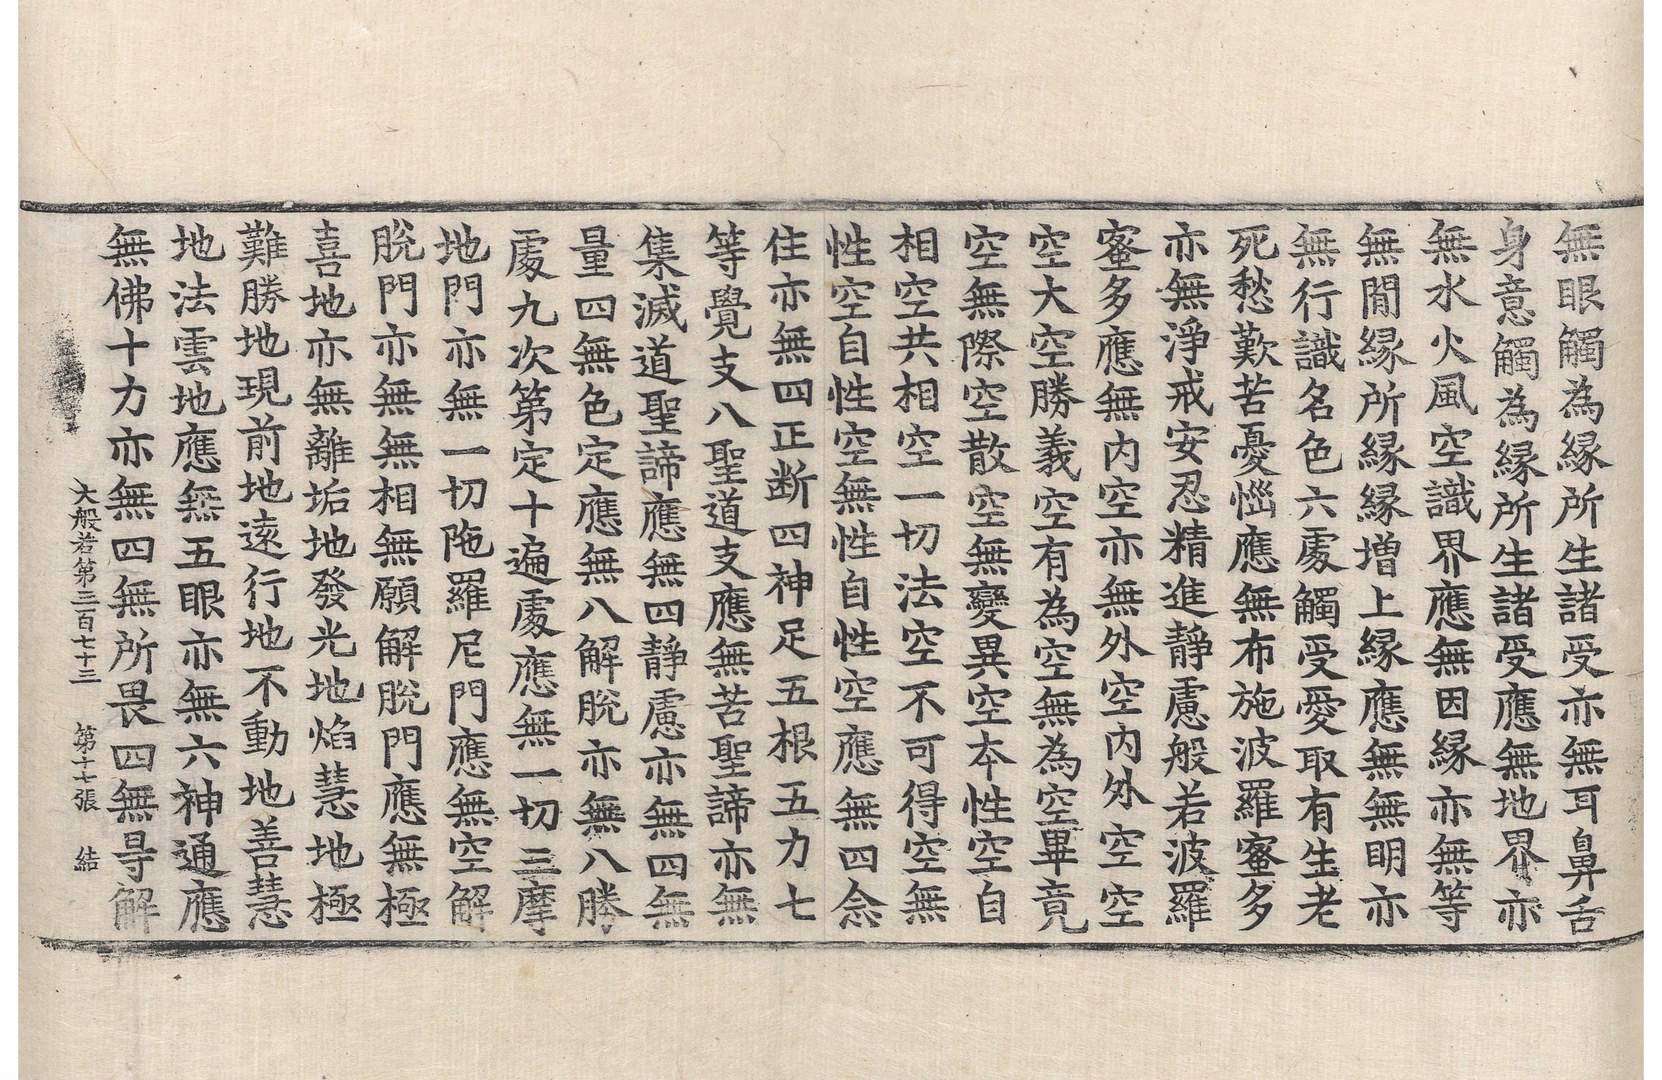 無眼觸為縁所生諸受亦無耳鼻舌
身意觸為縁所生諸受應無地界亦
無水火風空識界應無因縁亦無等
無閒縁所縁縁增上縁應無無明亦
無行識名色六處觸受愛取有生老
死愁歎苦憂惱應無布施波羅蜜多
亦無淨戒安忍精進靜慮般若波羅
蜜多應無內空亦無外空內外空空
空大空勝義空有為空無為空畢竟
空無際空散空無變異空本性空自
相空共相空一切法空不可得空無
性空自性空無性自性空應無四念
住亦無四正斷四神足五根五力七
等覺支八聖道支應無苦聖諦亦無
集滅道聖諦應無四靜慮亦無四無
量四無色定應無八解脫亦無八勝
處九次第定十遍處應無一切三摩
地門亦無一切陁羅尼門應無空解
脫門亦無無相無願解脫門應無極
喜地亦無離垢地發光地焰慧地極
難勝地現前地遠行地不動地善慧
地法雲地應無五眼亦無六神通應
無佛十力亦無四無所畏四無㝵解
大般若第三百七十三　第十七張　結